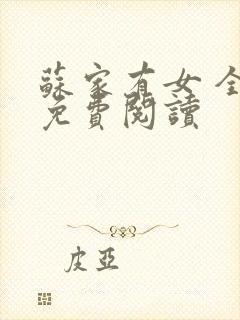 蘇家有女 全
免費閱讀
皮亞